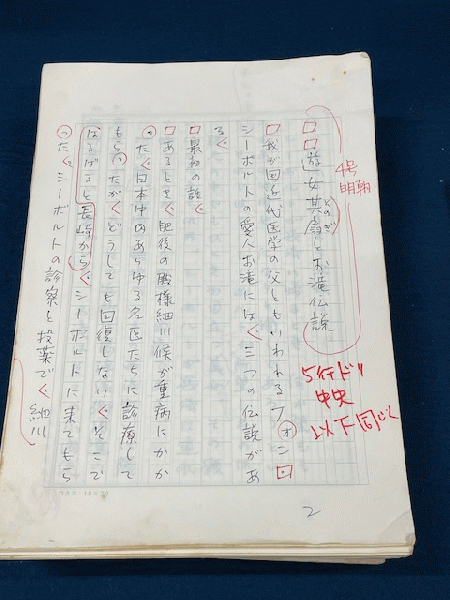 遊女其扇とお滝伝説
そのぎ
4号
明朝
5行ドリ
中央
以下同じ
我が国近代医学の父ともいわれるフォン・
シーボルトの愛人お滝には、三つの伝説があ
る。
最初の説。
あるとき、肥後の殿様細川候が重病にかか
った。日本中のあらゆる名医たちに診療して
もらったが、どうしても回復しない。そこで
はるばると長崎から、シーボルトに来てもら
った。シーボルトの診察と投薬で、細川
2